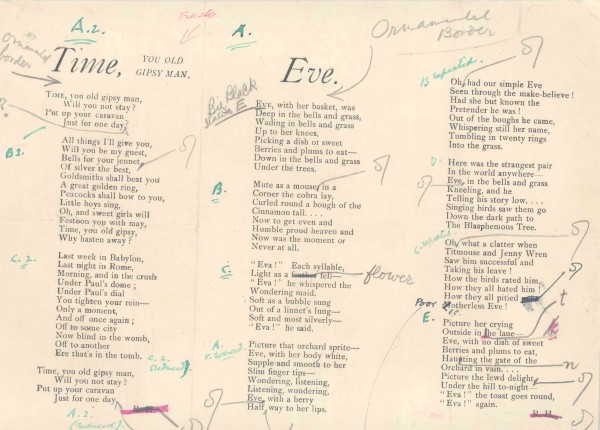 A.2.
Full stop
A.
Ornamental
Border
ornamental
border
Time, YOU OLD
GIPSY MAN.
TIME, you old gipsy man,
Will you not stay?
Put up your caravan
Just for one day?
?
B2.
All things I'll give you,
Will you be my guest,
Bells for your jennet
Of silver the best,
Goldsmiths shall beat you
A great golden ring,
Peacocks shall bow to you,
Little boys sing,
Oh, and sweet girls will
Festoon you with may,
Time, you old gipsy,
Why hasten away?
C.2.
Last week in Babylon,
Last night in Rome,
Morning, and in the crush
Under Paul's dome;
Under Paul's dial
You tighten your rein—
Only a moment,
And off once again;
Off to some city
Now blind in the womb,
Off to another
Ere that's in the tomb.
C.2.
(reduced).
Time, you old gipsy man,
Will you not stay?
Put up your caravan
Just for one day,
R. H.
A.2.
(reduced)
Eve.
Big Black
E
EVE, with her basket, was
Deep in the bells and grass,
Wading in bells and grass
Up to her knees,
Picking a dish of sweet
Berries and plums to eat—
Down in the bells and grass
Under the trees.
B.
Mute as a mouse in a
Corner the cobra lay,
Curled round a bough of the
Cinnamon tall. . . .
Now to get even and
Humble proud heaven and
Now was the moment or
Never at all.
C.
"Eva!" Each syllable,
Light as a feather fell—
flower
"Eva!" he whispered the
Wondering maid.
Soft as a bubble sung
Out of a linnet's lung—
Soft and most silverly—
"Eva!" he said.
A.
Picture that orchard sprite—
Eve, with her body white,
Supple and smooth to her
Slim finger tips—
Wondering, listening,
Listening, wondering,
Eve, with a berry
Half way to her lips.
B repeated.
Oh, had our simple Eve
Seen through the make-believe!
Had she but known the
Pretender he was!
Out of the boughs he came,
Whispering still her name,
Tumbling in twenty rings
Into the grass.
D.
Here was the strangest pair
In the world anywhere—
Eve, in the bells and grass
Kneeling, and he
Telling his story low. . . .
Singing birds saw them go
Down the dark path to
The Blasphemous Tree.
C repeated
Oh, what a clatter when
Titmouse and Jenny Wren
Saw him successful and
Taking his leave!
How the birds rated him,
How they all hated him!
How they all pitied
Poor
Motherless Eve!
t
E.
Picture her crying
Outside in the lane—
Eve, with no dish of sweet
Berries and plums to eat,
Haunting the gate of the
n
Orchard in vain. . . .
Picture the lewd delight
Under the hill to-night—
"Eva!" the toast goes round,
"Eva!" again.
R. H.